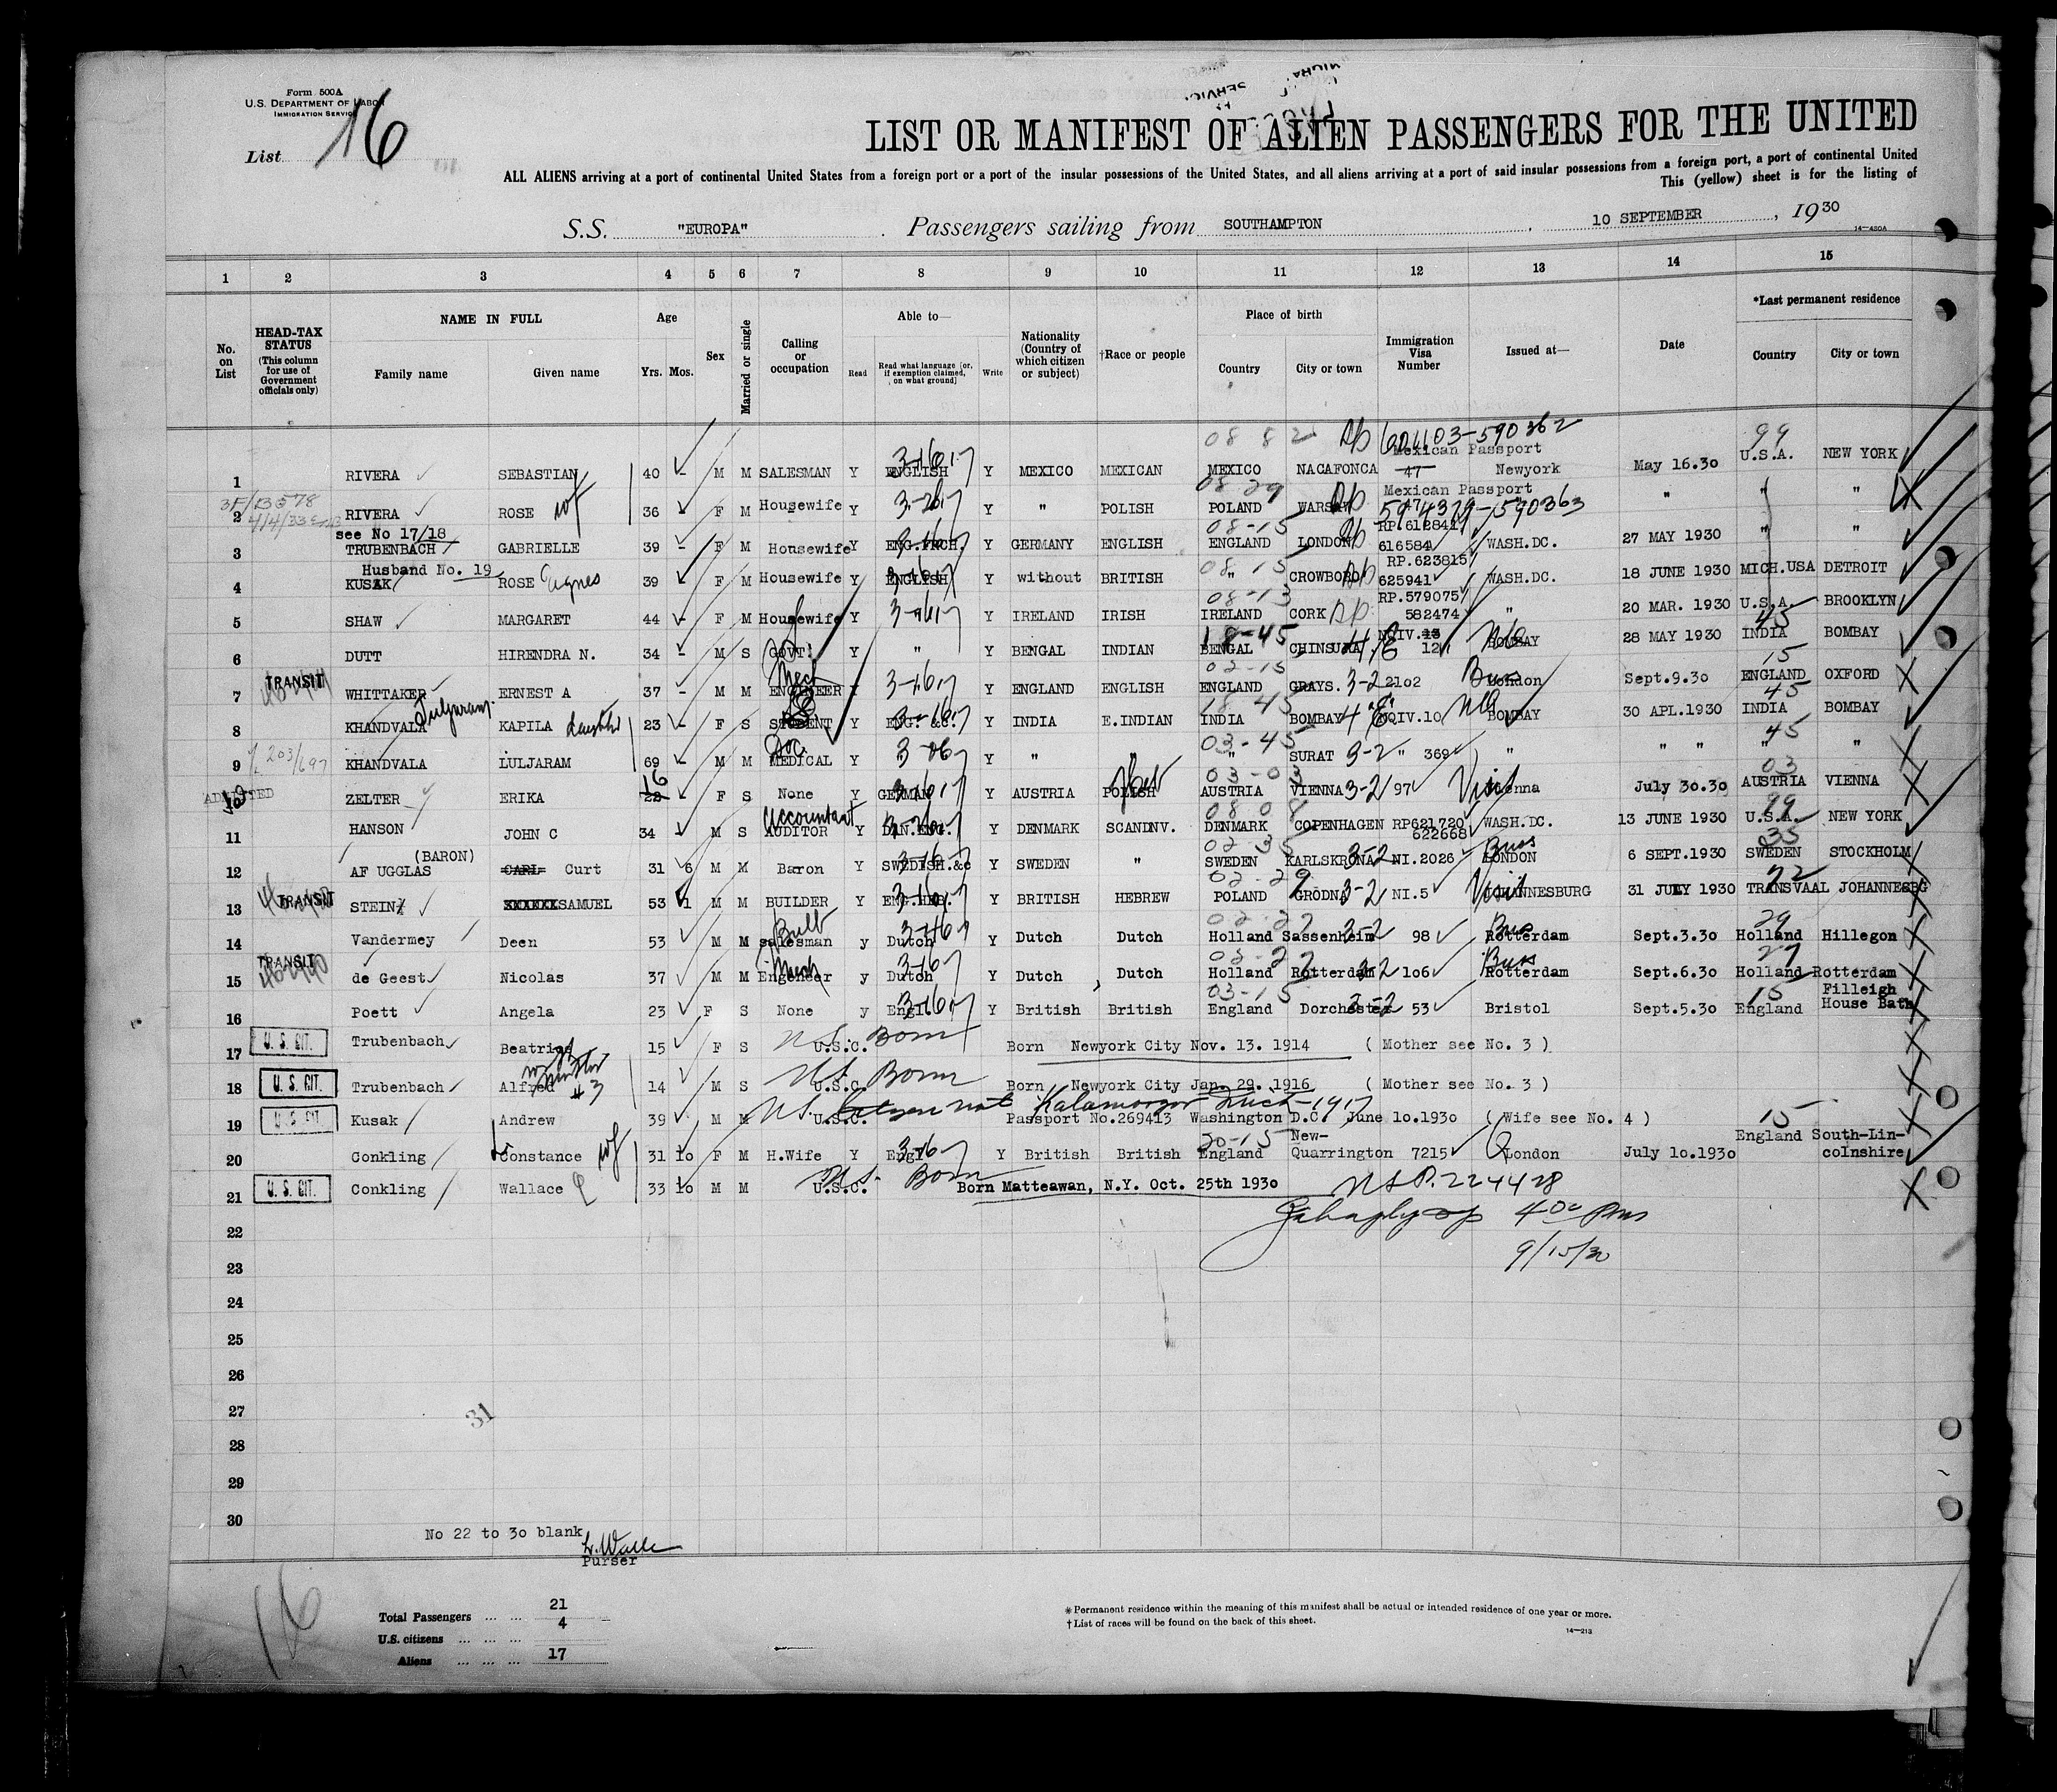 Form 500A
U.S. DEPARTMENT OF LABOR
IMMIGRATION SERVICE
List 16
LIST OR MANIFEST OF ALIEN PASSENGERS FOR THE UNITED
ALL ALIENS arriving at a port of continental United States from a foreign port or a port of the insular possessions of the United States, and all aliens arriving at a port of said insular possessions from a foreign port, a port of continental United
This (yellow) sheet is for the listing of
S.S. "EUROPA" . Passengers sailing from SOUTHAMPTON , 10 SEPTEMBER , 1930
14-480A
1 2 3 4 5 6 7 8 9 10 11 12 13 14 15
No. on List
HEAD-TAX STATUS (This column for use of Government officials only)
NAME IN FULL Family name Given name
Age Yrs. Mos.
Sex
Married or single
Calling or occupation
Able to— Read Read what language [or, if exemption claimed, on what ground] Write
Nationality (Country of which citizen or subject)
†Race or people
Place of birth Country City or town
Immigration Visa Number
Issued at—
Date
*Last permanent residence Country City or town
08 82 601103-590362 99
Mexican Passport
1 RIVERA SEBASTIAN 40 - M M SALESMAN Y ENGLISH Y MEXICO MEXICAN MEXICO NACAFONCA 47 Newyork May 16.30 U.S.A. NEW YORK
3F/B578 08-29 Mexican Passport
2 4/4/33 RIVERA ROSE wf 36 - F M Housewife Y Y " POLISH POLAND WARSAW 594379-590363 " " "
see No 17/18 08-15 RP.612841
3 TRUBENBACH GABRIELLE 39 - F M Housewife Y ENG.FRCH. Y GERMANY ENGLISH ENGLAND LONDON 616584 WASH.DC. 27 MAY 1930 " "
Husband No. 19 08-15 RP.623815
4 KUSAK ROSE Agnes 39 F M Housewife Y ENGLISH Y without BRITISH " CROWBORO 625941 WASH.DC. 18 JUNE 1930 MICH.USA DETROIT
08-13 RP.579075
5 SHAW MARGARET 44 - F M Housewife Y Y IRELAND IRISH IRELAND CORK 582474 " 20 MAR. 1930 U.S.A. BROOKLYN
18-45 45
6 DUTT HIRENDRA N. 34 - M S GOVT. Y " Y BENGAL INDIAN BENGAL CHINSURA NQIV. 12 BOMBAY 28 MAY 1930 INDIA BOMBAY
TRANSIT Mech 02-15 15
7 WHITTAKER ERNEST A 37 - M M ENGINEER Y Y ENGLAND ENGLISH ENGLAND GRAYS. 3-2 2102 London Sept.9.30 ENGLAND OXFORD
Tuljaram 18 45 45
8 KHANDVALA KAPILA daughter 23 - F S STUDENT Y ENG. &c. Y INDIA E.INDIAN INDIA BOMBAY NQIV.10 BOMBAY 30 APL.1930 INDIA BOMBAY
Doc. 03-45 45
9 203/697 KHANDVALA LULJARAM 69 - M M MEDICAL Y Y " " " SURAT 3-2 " 369 " " " " "
ADMITTED 16 03-03 03
10 ZELTER ERIKA 22 - F S None Y GERMAN Y AUSTRIA POLISH AUSTRIA VIENNA 3-2 97 Vienna Visit July 30.30 AUSTRIA VIENNA
Accountant 08 08 99
11 HANSON JOHN C 34 M S AUDITOR Y DAN.ENG. Y DENMARK SCANDNV. DENMARK COPENHAGEN RP621720 622668 WASH.DC. 13 JUNE 1930 U.S.A. NEW YORK
(BARON) 02 35 Buss 35
12 AF UGGLAS CARL Curt 31 6 M M Baron Y SWEDISH.&c Y SWEDEN " SWEDEN KARLSKRONA 3-2 NI.2026 LONDON 6 SEPT.1930 SWEDEN STOCKHOLM
TRANSIT 02-29 Visit 72
13 STEIN SAMUEL 53 1 M M BUILDER Y ENG.HEB. Y BRITISH HEBREW POLAND GRODNA 3-2 NI.5 JOHANNESBURG 31 JULY 1930 TRANSVAAL JOHANNESBG
Bulb 02-27 Bus
14 Vandermey Deen 53 M M salesman y Dutch Y Dutch Dutch Holland Sassenheim 3-2 98 Rotterdam Sept.3.30 Holland Hillegon
TRANSIT Mech 02-27 Bus 27
15 de Geest Nicolas 37 M M Engeneer y Dutch Y Dutch Dutch Holland Rotterdam 3-2 106 Rotterdam Sept.6.30 Holland Rotterdam
03-15 15 Filleigh
16 Poett Angela 23 F S None y Engl. Y British British England Dorchester 3-2 53 Bristol Sept.5.30 England House Bath
17 U. S. CIT. Trubenbach Beatrice 15 F S U.S.C. US Born Born Newyork City Nov. 13. 1914 ( Mother see No. 3 )
18 U. S. CIT. Trubenbach Alfred w mother #3 14 M S U.S.C. US Born Born Newyork City Jan. 29. 1916 ( Mother see No. 3 )
US. Citizen nat Kalamazoo Mich-1917
19 U S CIT Kusak Andrew 39 M M U.S.C. Passport No.269413 Washington D.C. June 10.1930 ( Wife see No. 4 )
20-15 15
20 Conkling Constance wf 31 10 F M H.Wife Y Engl. Y British British England New-Quarrington 7215 London July 10.1930 England South-Lincolnshire
21 U. S. CIT. Conkling Wallace 33 10 M M U.S.C. US. Born Born Matteawan, N.Y. Oct. 25th 1930 USP.224428
22 400 Pm
23 9/15/30
24
25
26
27
31
28
29
30
No 22 to 30 blank
Purser
16
Total Passengers ... ... 21
U.S. citizens ... ... ... 4
Aliens ... ... ... 17
*Permanent residence within the meaning of this manifest shall be actual or intended residence of one year or more.
†List of races will be found on the back of this sheet.
14-213